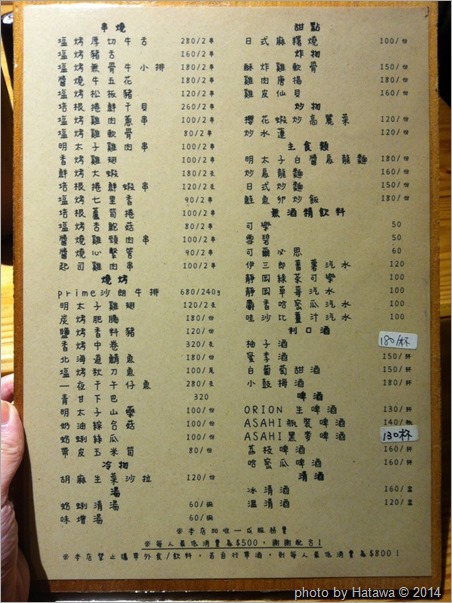 串燒
塩烤厚切牛舌 280/2串
塩烤豬舌 160/2串
塩烤無骨牛小排 180/2串
醬燒牛五花 180/2串
塩烤松板豬 120/2串
培根捲鮮干貝 260/2串
塩烤雞肉蔥串 100/2串
塩烤雞軟骨 80/2串
明太子雞肉串 100/2串
香烤雞翅 100/2串
鮮烤大蝦 180/2支
培根捲鮮蝦串 120/2支
塩烤七里香 90/2串
培根蘆筍捲 100/2串
塩烤杏鮑菇 80/2串
醬燒雞頸肉串 100/2串
醬燒心醬管 90/2串
起司雞肉串 100/2串
燒烤
prime沙朗牛排 680/240g
明太子雞翅 120/2支
炭烤肥腸 180/份
鹽烤香料豬 120/份
香烤中卷 320/支
北海道鯖魚 180/份
塩烤秋刀魚 100/尾
一夜干午仔魚 280/支
青甘下巴 320
明太子山藥 100/份
奶油綜合菇 100/份
奶蜊絲瓜 100/份
帶皮玉米筍 80/份
冷物
胡麻生菜沙拉 120/份
湯
奶蜊清湯 60/碗
味增湯 60/碗
甜點
日式麻糬燒 100/份
炸物
酥炸雞軟骨 150/份
雞肉唐揚 180/份
雞皮仙貝 160/份
炒物
櫻花蝦炒高麗菜 120/份
炒水蓮 120/份
主食類
明太子白醬烏龍麵 180/份
炒烏龍麵 160/份
日式炒麵 150/份
鮭魚卵炒飯 180/份
無酒精飲料
可樂 50
雪碧 50
可爾必思 60
伊三郎蕃薯汽水 120
靜岡綠茶可樂 100
靜岡草莓汽水 100
麝香哈密瓜汽水 100
哇沙比薑汁汽水 100
利口酒
柚子酒 180/杯
蜜李酒 150/杯
白葡萄甜酒 150/杯
小鼓梅酒 180/杯
啤酒
ORION 生啤酒 130/杯
ASAHI瓶裝啤酒 140/瓶
ASAHI黑麥啤酒 130杯
荔枝啤酒 160/杯
哈密瓜啤酒 160/杯
清酒
冰清酒 160/壺
溫清酒 120/壺
※本店加收一成服務費
※每人最低消費為$500，謝謝配合!
※本店禁止攜帶外食/飲料，若自行帶酒，則每人最低消費為$800!
photo by Hatawa © 2014